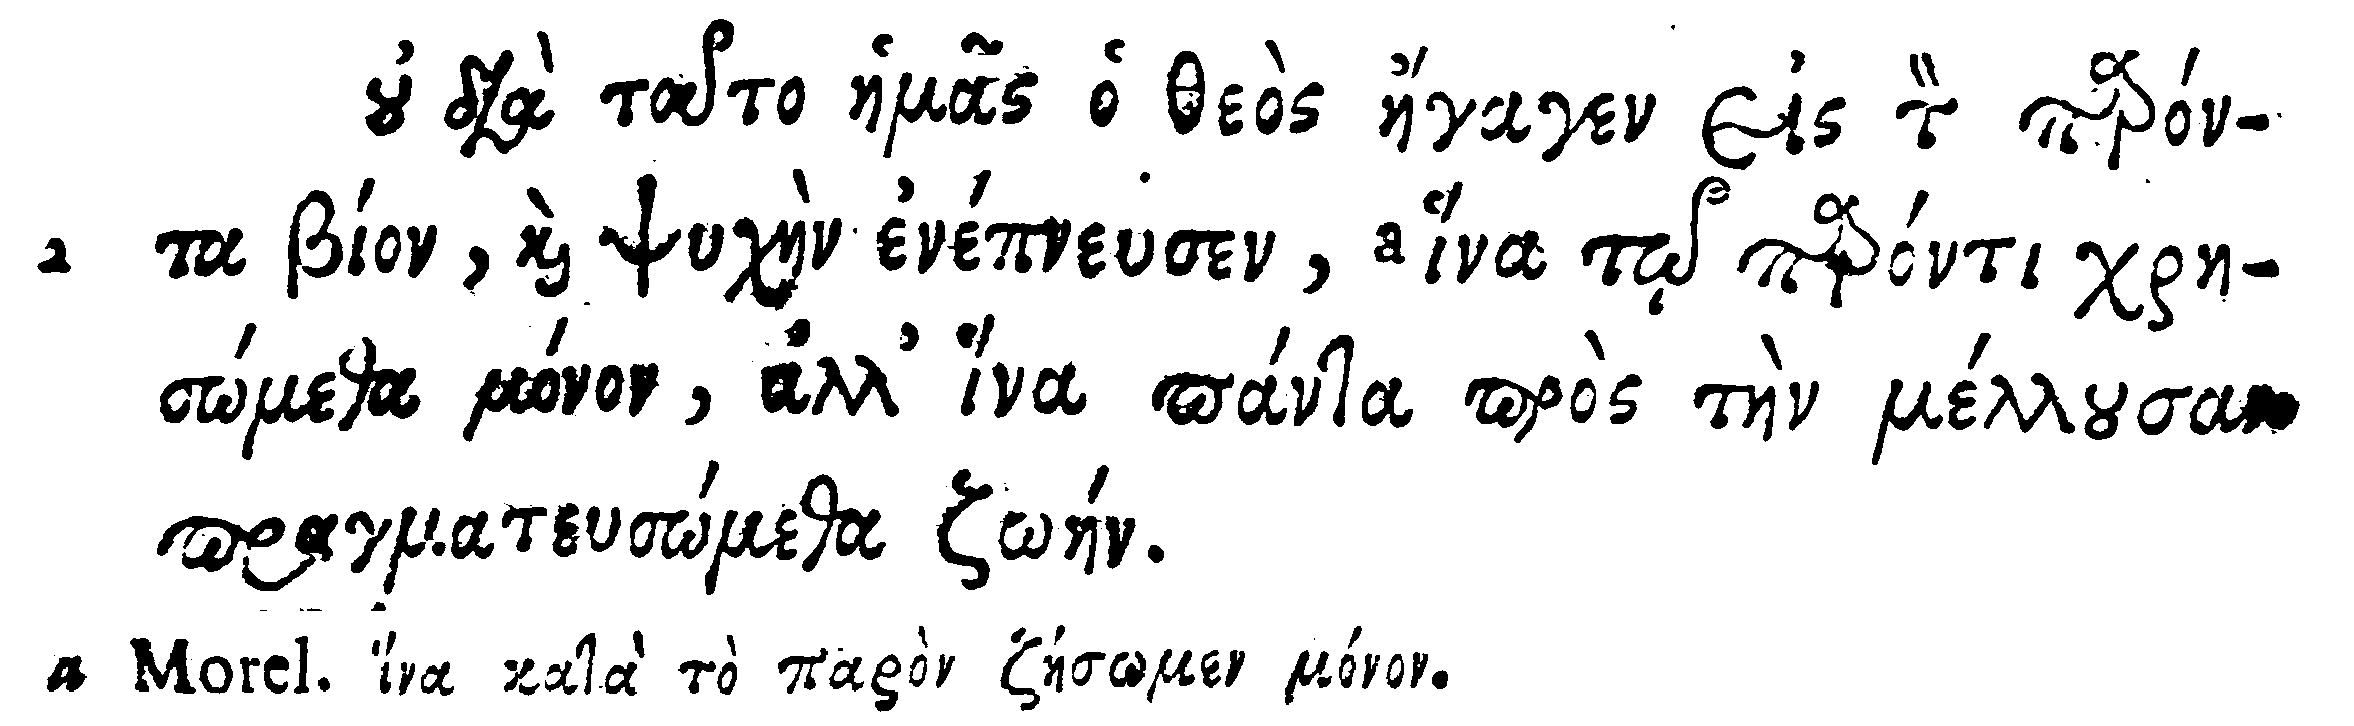 οὐ διὰ τοῦτο ἡμᾶς ὁ θεὸς ἤγαγεν εἰς τὸν παρόν-
2 τα βίον, καὶ ψυχὴν ἐνέπνευσεν, a ἵνα τῷ παρόντι χρη-
σώμεθα μόνον, ἀλλ' ἵνα πάντα πρὸς τὴν μέλλουσαν
πραγματευσώμεθα ζωήν.
a Morel. ἵνα κατὰ τὸ παρὸν ζήσωμεν μόνον.